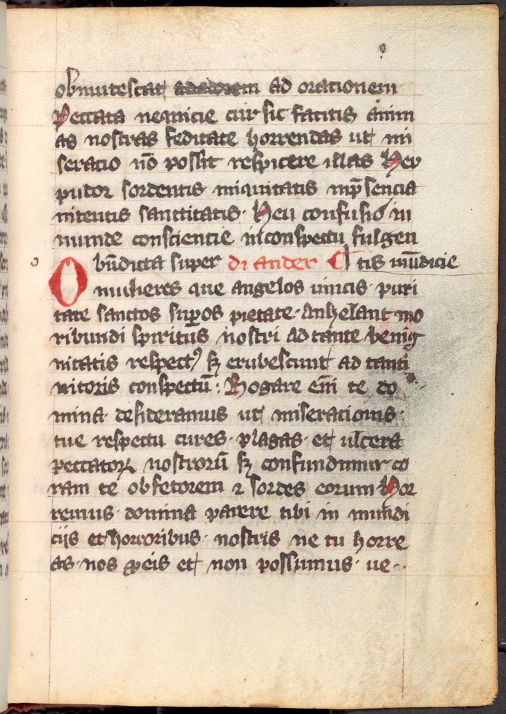 obmutescat ad orationem
Peccata nequicie cur sic facitis anim
as nostras feditate horrendas ut mi
seratio nō possit respicere illas Hey
pudor sordentis iniquitatis inp̄sencia
nitentis sanctitatis · Heu confusio in
munde consciencie inconspectu fulgen
O bn̄dicta super di ander ¶ tis mūdicie
mulieres que angelos vincis puri
tate sanctos sup̄os pietate · Anhelant mo
ribundi spiritus nostri ad tante benig
nitatis respectꝰ sꝫ erubescunt ad tanti
nitoris conspectū : Rogare em̄ te do
mina desideramus ut miseracionis ·
tue respectu cures · plagas · et ulcera
peccatoꝝ nostrorū sꝫ confundimur co
ram te ob fetorem ⁊ sordes eorum Hor
remus · domina parere tibi in mundi
cijs et horroribus · nostris ne tu horre
as · nos ꝓ eis et non possumus · ue-